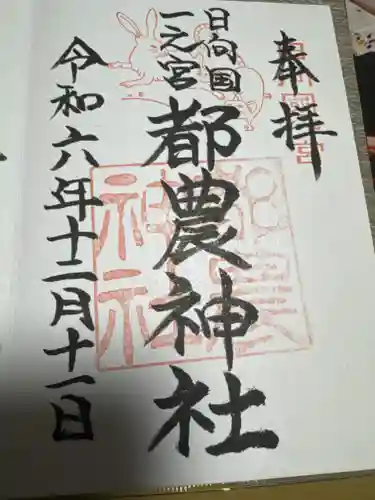 奉拝
日向国
一之宮
都農神社
令和六年十二月十一日